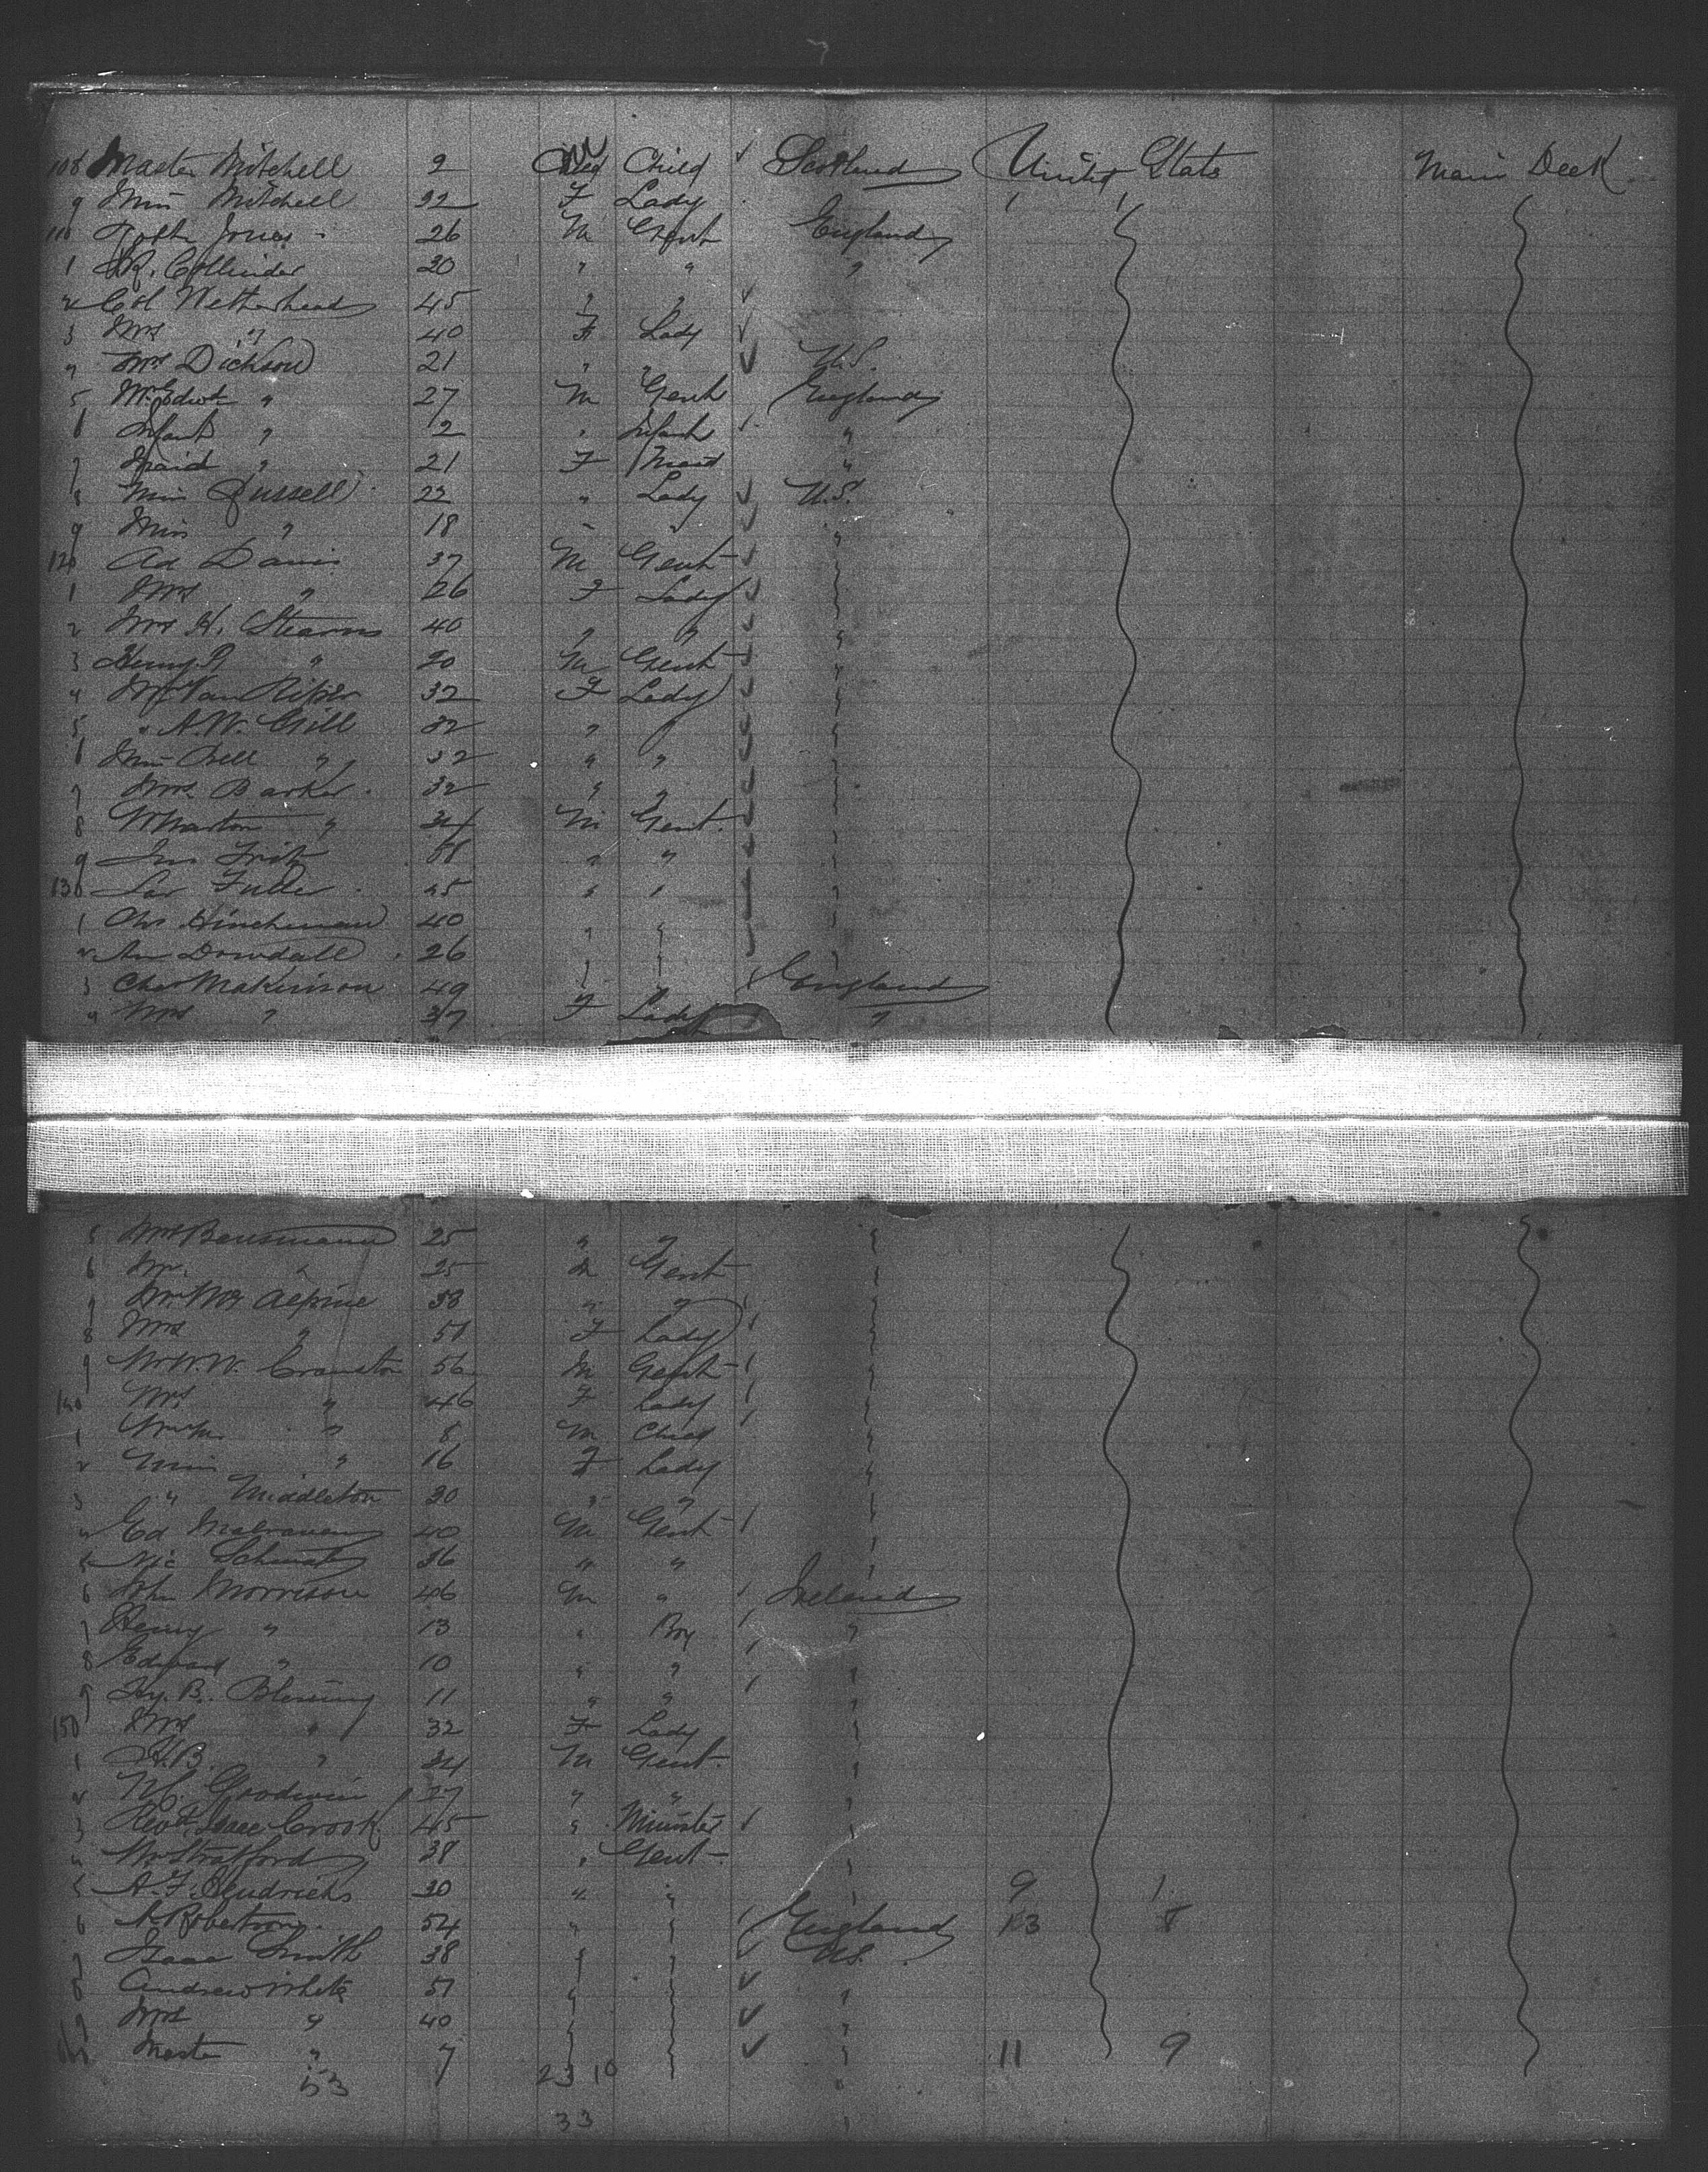 108 Master Mitchell 2 M Child Scotland United States Main Deck
9 Miss Mitchell 22 F Lady
110 Robt Jones 26 M Gent England
1 R. Collinder 20 " " "
2 Col Wetherhead 45 " "
3 Mrs " 40 F Lady
4 Mrs Dickson 21 " " U.S.
5 Mr Edwd " 27 M Gent England
6 Infant " 2 " Infant "
7 Maid " 21 F Maid "
8 Miss Russell 22 " Lady U.S.
9 Miss " 18 " " "
120 Ad Davis 37 M Gent "
1 Mrs " 26 F Lady "
2 Mrs H. Stearns 40 " " "
3 Henry P " 20 M Gent "
4 Mrs Van Riper 32 F Lady "
5 " A.W. Gill 32 " " "
6 Miss Bell " 32 " " "
7 Mrs. Barker 32 " " "
8 Wharton " 34 M Gent. "
9 Jno Fritz " " "
130 Fuller 45 " " "
1 Hincheman 40 " " "
2 Dowdall 26 " " "
3 Chas Makinson 49 " " England
4 Mrs " 37 F Lady "
5 Mrs Bensmann 25 " " "
6 Mr. " 25 M Gent "
7 Mr. Mc Alpine 58 " " "
8 Mrs " 51 F Lady "
9 Mr W.W. Cranston 56 M Gent "
140 Mrs " 46 F Lady "
1 " 8 M Child "
2 Miss " 16 F Lady "
3 " Middleton 30 " " "
4 Ed 40 M Gent "
5 Nic 36 " " "
6 John Morrison 46 M " Ireland
7 Henry " 13 " Boy "
8 Edward " 10 " " "
9 Hy. B. Blessing 11 " " "
150 Mrs " 32 F Lady "
1 H.B. " 34 M Gent. "
2 Goodwin 27 " " "
3 Revd Isaac Crook 45 " Minister "
4 Mr Strafford 38 " Gent "
5 A. F. Hendricks 30 " " " 9 1
6 A. Robertson 54 " " England 13 8
7 Isaac Smith 38 " " U.S.
8 Andrew White 51 " " "
9 Mrs " 40 " " "
Master " 7 " " " 11 9
53 23 10
33